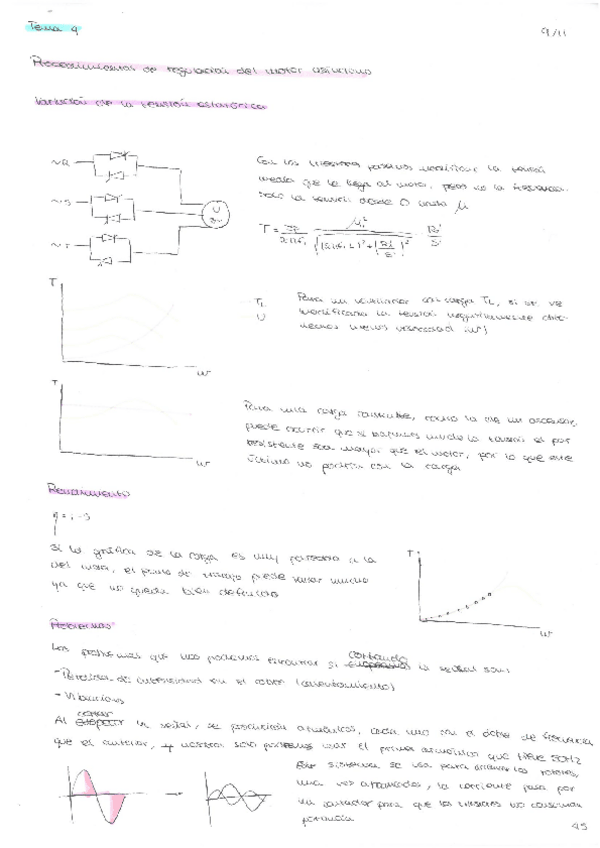 Tema 9
9/11
Procedimientos de regulación del motor asíncrono
Variación de la tensión estatórica
~R
~S
~T
U
3~
Con los tiristores podemos modificar la tensión
media que le llega al motor, pero no la frecuencia.
Solo la tensión desde 0 hasta μ
T
ω
TL
U
Para un ventilador con carga TL, si se ve
modificada la tensión
menos velocidad (ω)
T
ω
Para una carga constante, como la de un ascensor,
puede ocurrir que si bajamos mucho la tensión el par
resistente sea mayor que el motor, por lo que este
último no podría con la carga
Rendimiento
η = 1 - S
Si la gráfica de la carga es muy parecida a la
del motor, el punto de trabajo puede variar mucho
ya que no queda bien definido
T
ω
Problemas
Los problemas que nos podemos encontrar si cortando la señal son:
- Pérdidas de intensidad en el cobre (calentamiento)
- Vibraciones
Al cortar la señal, se producirán armónicos, cada uno con el doble de frecuencia
que el anterior, y nosotros solo podremos usar el primer armónico que tiene 50Hz
Este sistema se usa para arrancar los motores,
una vez arrancados, la corriente pasa por
un para que los tiristores no consuman
potencia
45